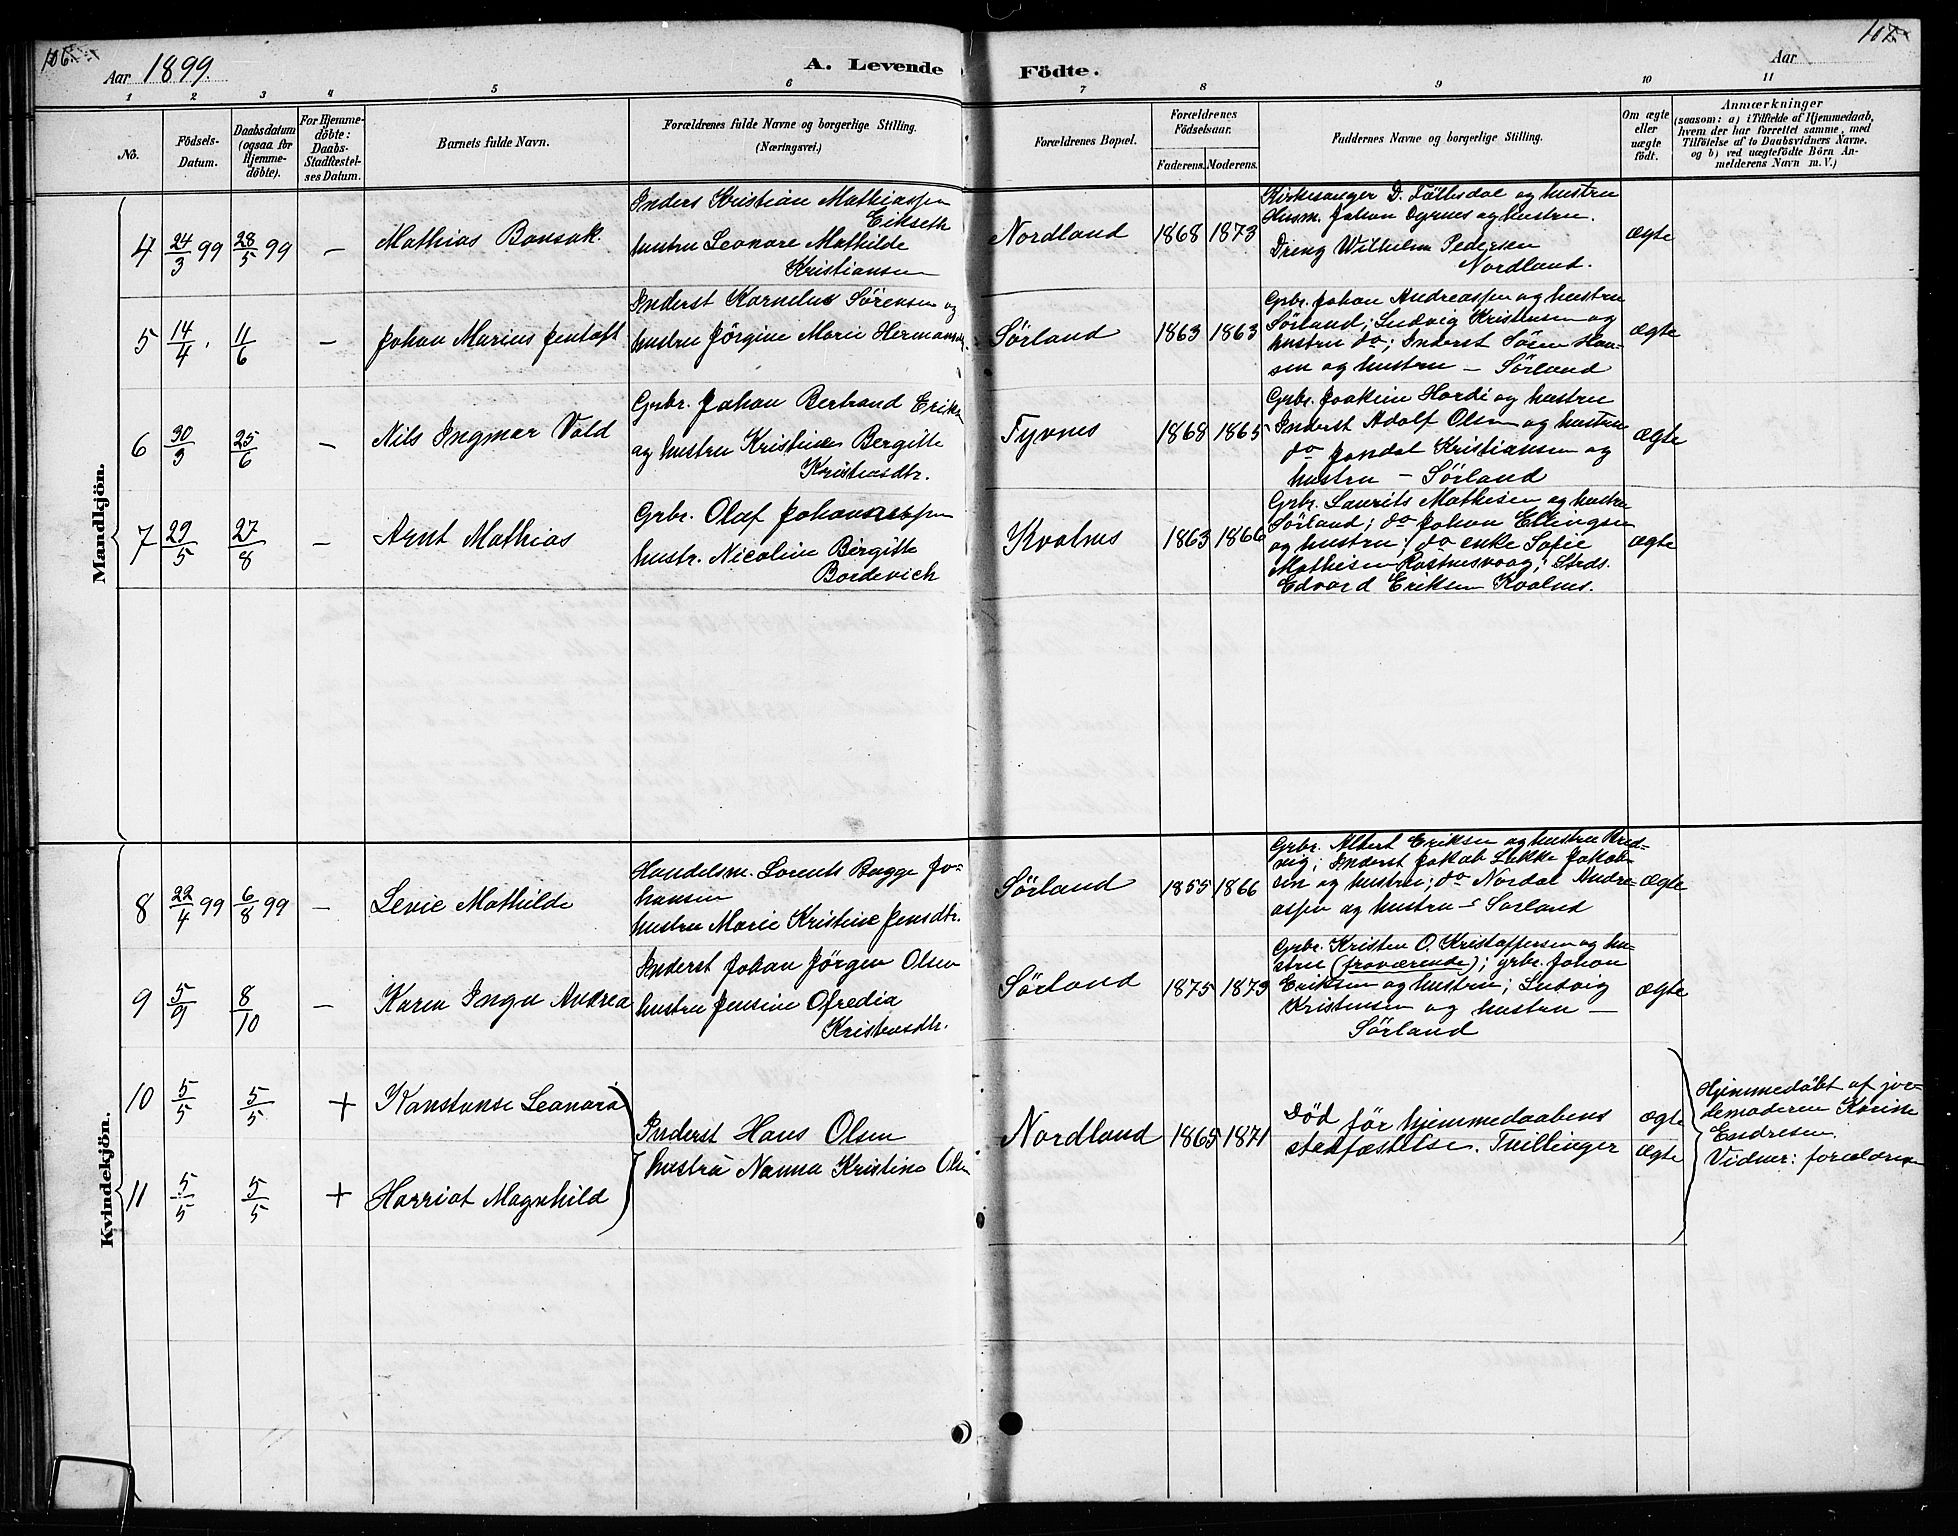 106.
107.
Aar 1899.
A. Levende
Födte.
Aar
1 2 3 4 5 6
7 8 9 10 11
No.
Födsels-Datum.
Daabsdatum (ogsaa for Hjemme-döbte).
For Hjemme-döbte: Daabs-Stadfæstel-ses Datum.
Barnets fulde Navn.
Forældrenes fulde Navne og borgerlige Stilling.
(Næringsvei.)
Forældrenes Bopæl.
Forældrenes Födselsaar.
Faderens. Moderens.
Faddernes Navne og borgerlige Stilling.
Om ægte eller uægte födt.
Anmærkninger
(saasom: a) i Tilfælde af Hjemmedaab,
hvem der har forrettet samme, med
Tilföielse af to Daabsvidners Navne,
og b) ved uægtefödte Börn An-
melderens Navn m. V.)
Mandkjön.
4 24/3 99 28/5 99 –
Mathias Bonsak.
Inders Kristian Mathiassen
Eikseth
hustru Leonore Mathilde
Kristiansen
Nordland 1868 1873
Kirkesanger D. Tölbsdal og hustru
Husm. Johan Tyrnes og hustru.
Dreng Wilhelm Pedersen
Nordland.
Ægte
5 14/4 . 11/6 –
Johan Marius Jentoft
Inderst Kornelius Sörensen og
hustru Jörgine Marie Hermansd.
Sörland 1863 1863
Grbr. Johan Andreassen og hustru
Sörland; Ludvig Kristensen og
hustru do; Inderst Sören Han-
sen og hustru – Sörland
Ægte
6 30/3 25/6 –
Nils Ingmar Vold
Grbr. Johan Bertrand Eriks.
og hustru Kristine Bergitte
Kristiansdtr.
Tyvnes 1868 1865
Grbr. Joakim Hardi og hustru
Inderst Adolf Olsen og hustru
do Jondal Kristiansen og
hustru – Sörland
Ægte
7 29/5 27/8 –
Arnt Mathias
Grbr. Olaf Johannessen
hustr. Nicoline Birgitte
Bordevich
Kvalnes 1863 1866
Grbr. Laurits Mathisen og hustru
Sörland; do Johan Ellingsen
og hustru; do enke Sofie
Mathisen Røstnesvaag; Strds.
Edvard Eriksen Kvalnes.
Ægte
Kvindekjön.
8 22/4 99 6/8 99 –
Levie Mathilde
Handelsm. Lorents Bugge Jo-
hansen
hustru Marie Kristine Jensdtr.
Sörland 1855 1866
Grbr. Albert Eriksen og hustru Hred-
vig; Inderst Jakob Lükke Jakob-
sen og hustru; do Nordal Andre-
assen og hustru – Sorland
Ægte
9 5/9 8/10 –
Karen Inga Andrea
Inderst Johan Jörgen Olsen
hustru Jensine Ofredia
Kristensdtr.
Sörland 1875 1879
Grbr. Kristen O. Kristoffersen og hu-
stru (fraværende); grbr. Johan
Eriksen og hustru; Ludvig
Kristensen og hustru –
Sörland
Ægte
10 5/5 5/5 +
Konstanse Leonora
11 5/5 5/5 +
Harriot Magnhild
Inderst Hans Olsen
hustru Nanna Kristine Olsen
Nordland 1865 1871
Död för hjemmedaabens
stadfæstelse. Tvillinger
Ægte
Ægte
Hjemmedöbt af jor-
demoderen Karine
Endresen.
Vidner: forældrene